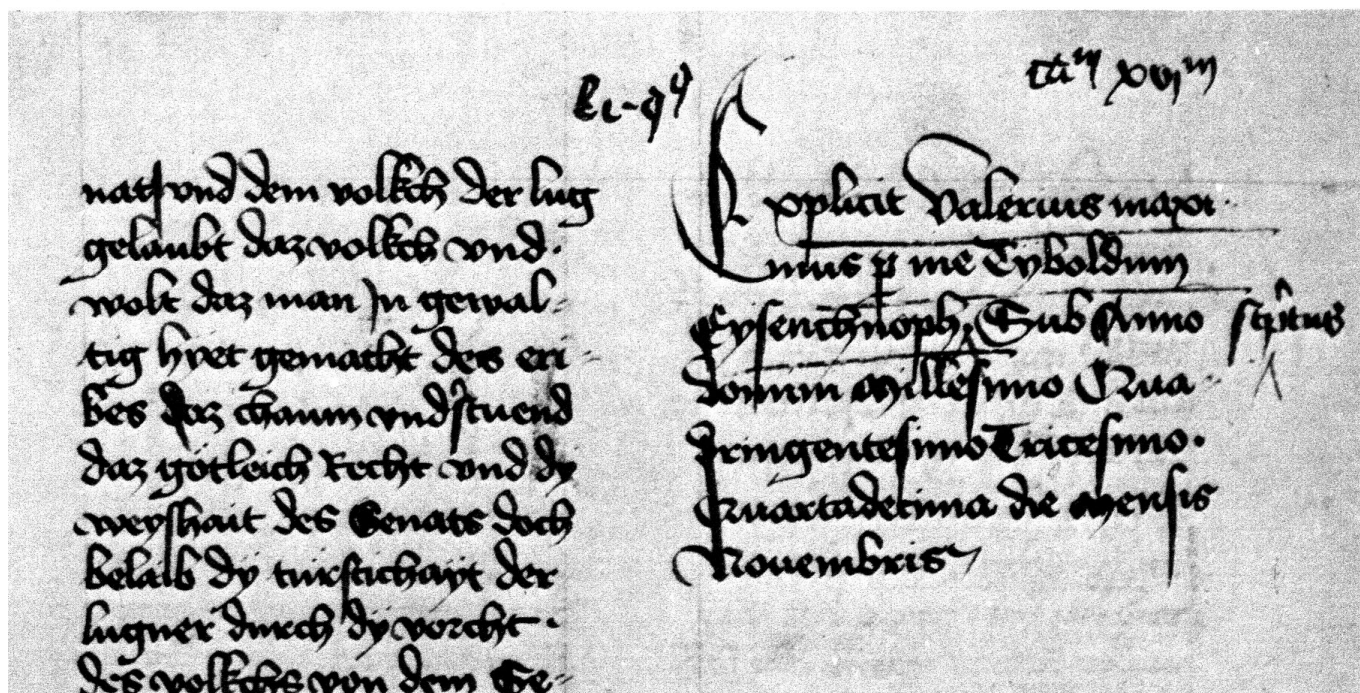 nats vnd dem volkch der lug
gelaubt daz volkch vnd
wolt daz man Jn gewal-
tig hyet gemacht des eri-
bes daz chaum vnd stuend
daz gotleich Recht vnd dy
weyshait des Senats doch
belaib dy türstichayt der
lugner durch dy vorcht
des volkchs von dem Ge-
Explicit Valerius maxi-
mus p me Tyboldum
Eysenchnoph Sub Anno scptus
domini Millesimo Qua-
dringentesimo Tricesimo
Quartadecima die Mensis
Nouembris